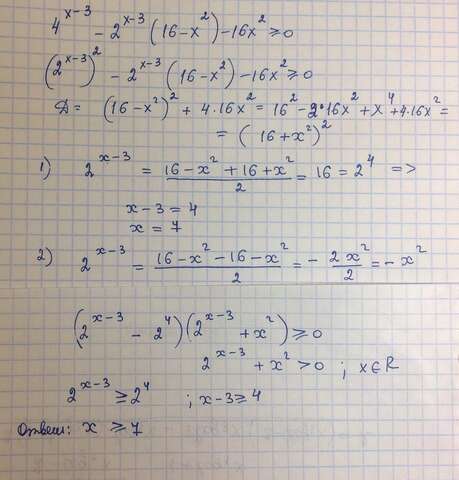 4^{x-3} - 2^{x-3} (16 - x^2) - 16x^2 ≥ 0
(2^{x-3})^2 - 2^{x-3} (16 - x^2) - 16x^2 ≥ 0
Д = (16 - x^2)^2 + 4·16x^2 = 16^2 - 2·16x^2 + x^4 + 4·16x^2 =
= (16 + x^2)^2
1) 2^{x-3} = \frac{16 - x^2 + 16 + x^2}{2} = 16 = 2^4 =>
x - 3 = 4
x = 7
2) 2^{x-3} = \frac{16 - x^2 - 16 - x^2}{2} = - \frac{2x^2}{2} = - x^2
(2^{x-3} - 2^4)(2^{x-3} + x^2) ≥ 0
2^{x-3} + x^2 > 0 ; x ∈ R
2^{x-3} ≥ 2^4 ; x - 3 ≥ 4
Ответ: x ≥ 7